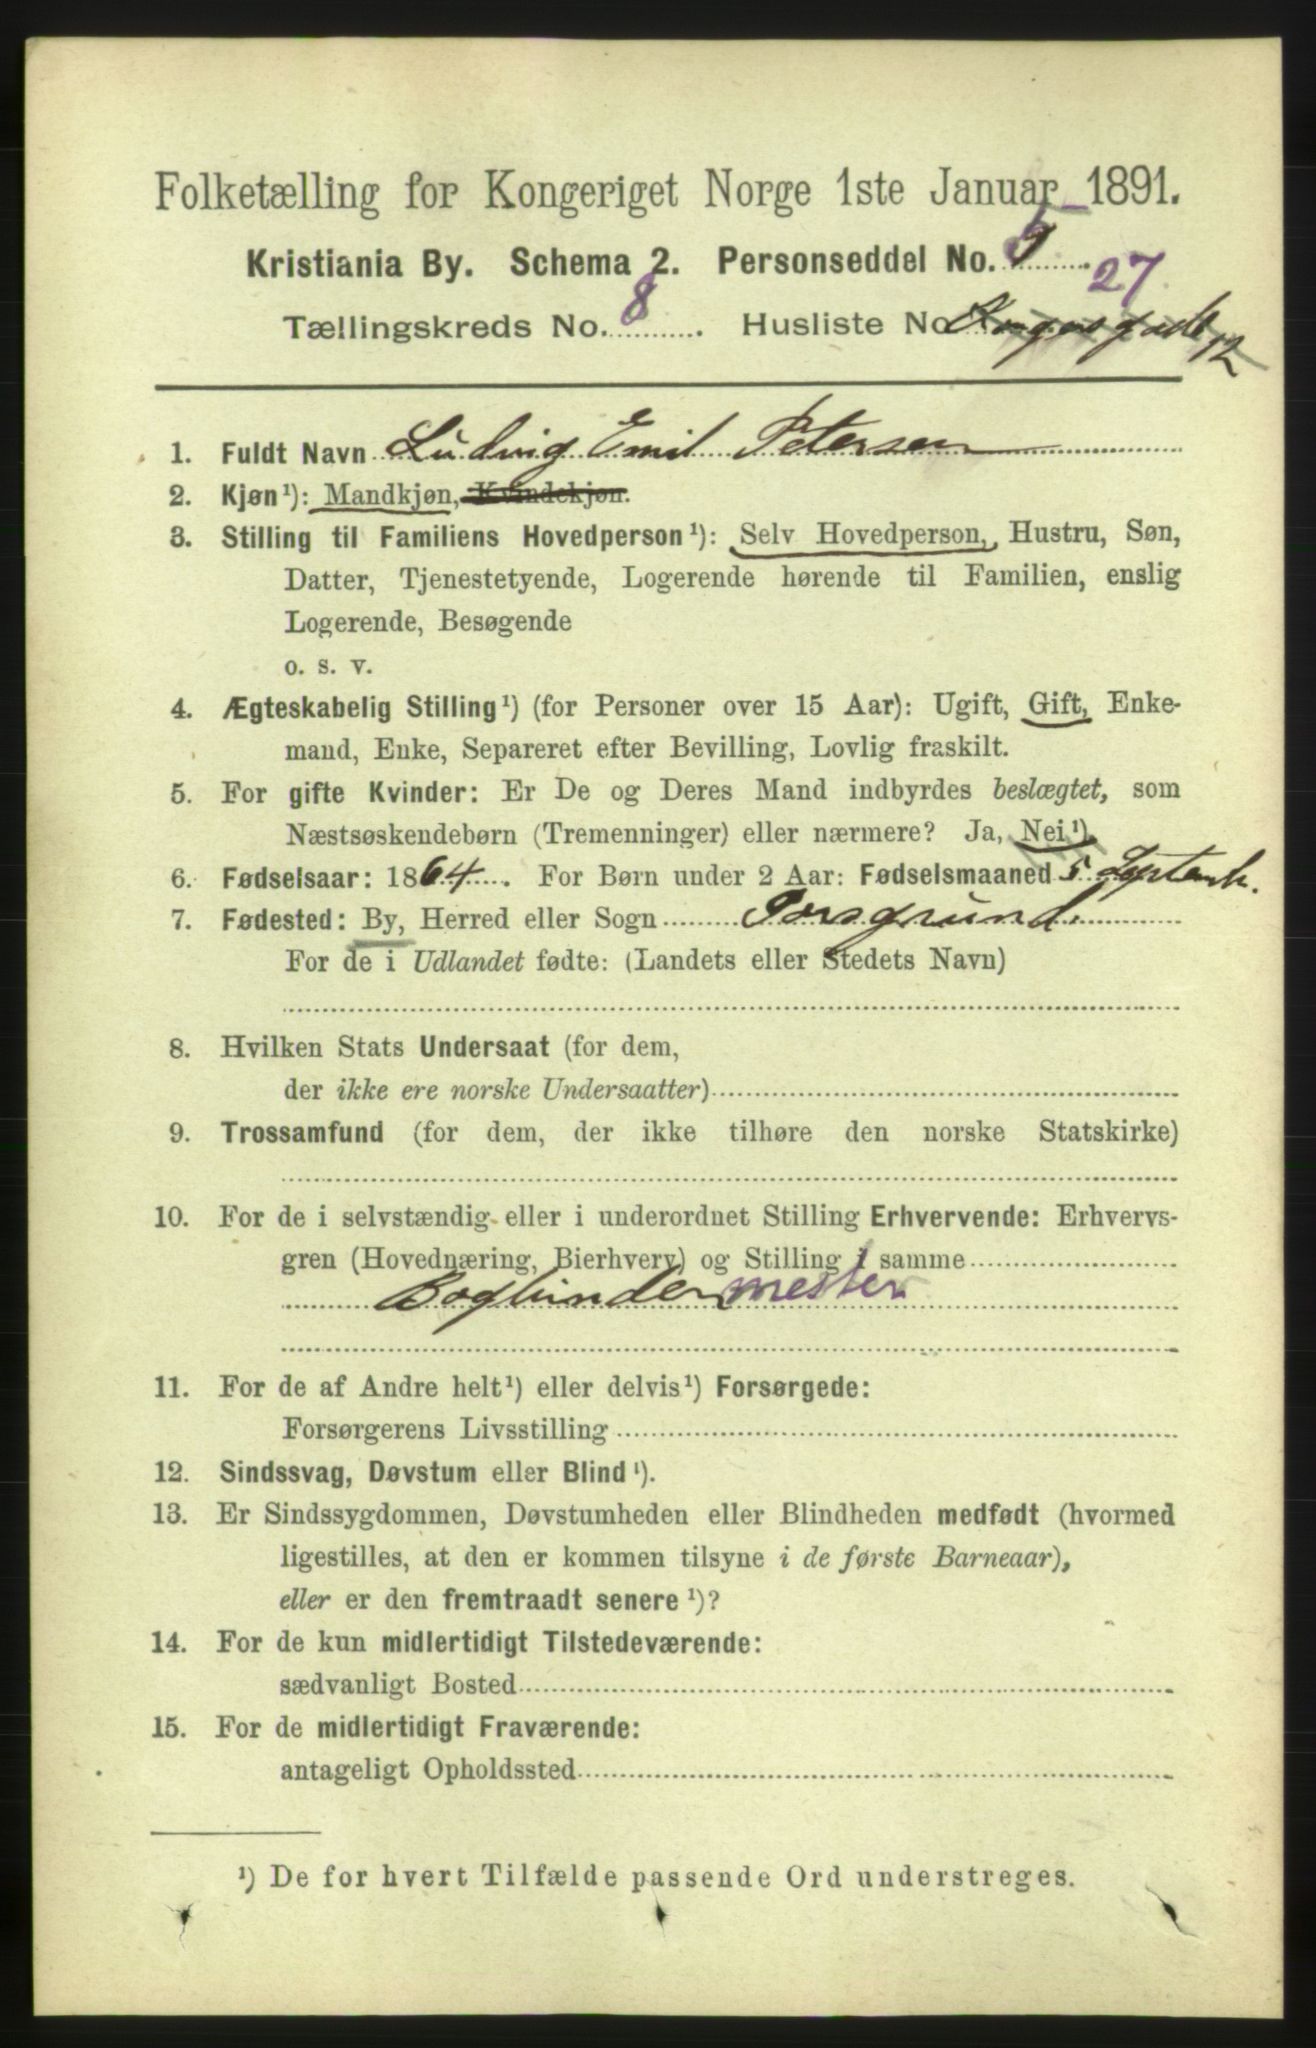 Folketælling for Kongeriget Norge 1ste Januar 1891.
Kristiania By. Schema 2. Personseddel No. 5
27
Tællingskreds No. 8. Husliste No. Kongensgade 12
1. Fuldt Navn Ludvig Emil Petersen
2. Kjøn¹): Mandkjøn, Kvindekjøn.
3. Stilling til Familiens Hovedperson¹): Selv Hovedperson, Hustru, Søn,
Datter, Tjenestetyende, Logerende hørende til Familien, enslig
Logerende, Besøgende
o. s. v.
4. Ægteskabelig Stilling¹) (for Personer over 15 Aar): Ugift, Gift, Enke-
mand, Enke, Separeret efter Bevilling, Lovlig fraskilt.
5. For gifte Kvinder: Er De og Deres Mand indbyrdes beslægtet, som
Næstsøskendebørn (Tremenninger) eller nærmere? Ja, Nei¹).
6. Fødselsaar: 1864. For Børn under 2 Aar: Fødselsmaaned 5 Septemb.
7. Fødested: By, Herred eller Sogn Porsgrund.
For de i Udlandet fødte: (Landets eller Stedets Navn)
8. Hvilken Stats Undersaat (for dem,
der ikke ere norske Undersaatter)
9. Trossamfund (for dem, der ikke tilhøre den norske Statskirke)
10. For de i selvstændig eller i underordnet Stilling Erhvervende: Erhvervs-
gren (Hovednæring, Bierhverv) og Stilling i samme
Bogbindermester
11. For de af Andre helt¹) eller delvis¹) Forsørgede:
Forsørgerens Livsstilling
12. Sindssvag, Døvstum eller Blind¹).
13. Er Sindssygdommen, Døvstumheden eller Blindheden medfødt (hvormed
ligestilles, at den er kommen tilsyne i de første Barneaar),
eller er den fremtraadt senere¹)?
14. For de kun midlertidigt Tilstedeværende:
sædvanligt Bosted
15. For de midlertidigt Fraværende:
antageligt Opholdssted
¹) De for hvert Tilfælde passende Ord understreges.